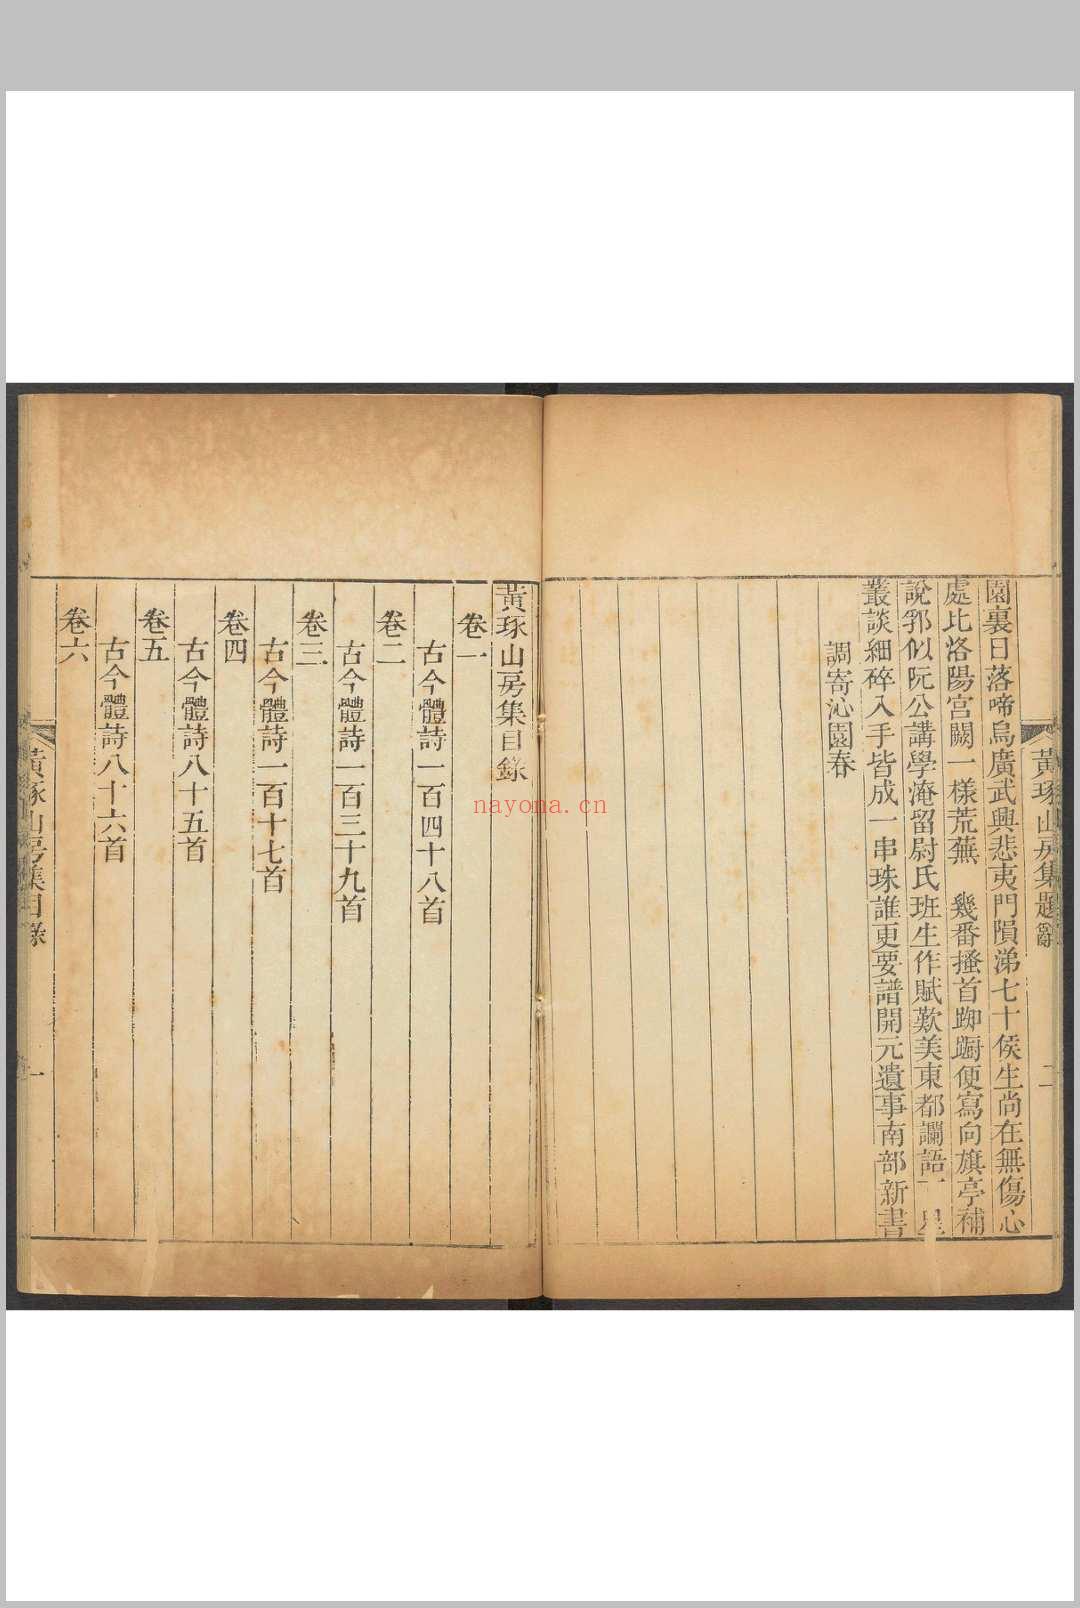 黃琢山房集題辭
二
園裏日落啼烏廣武興悲夷門隕涕七十侯生尚在無傷心
處比洛陽宮闕一樣荒蕪　幾番搔首踟躕便寫向旗亭補
說郛似阮公講學淹留尉氏班生作賦歎美東都讕語
叢談細碎入手皆成一串珠誰更要譜開元遺事南部新書
調寄沁園春
黃琢山房集目錄
卷一
古今體詩一百四十八首
卷二
古今體詩一百三十九首
卷三
古今體詩一百十七首
卷四
古今體詩八十五首
卷五
古今體詩八十六首
卷六
黃琢山房集目錄
一
nayona.cn